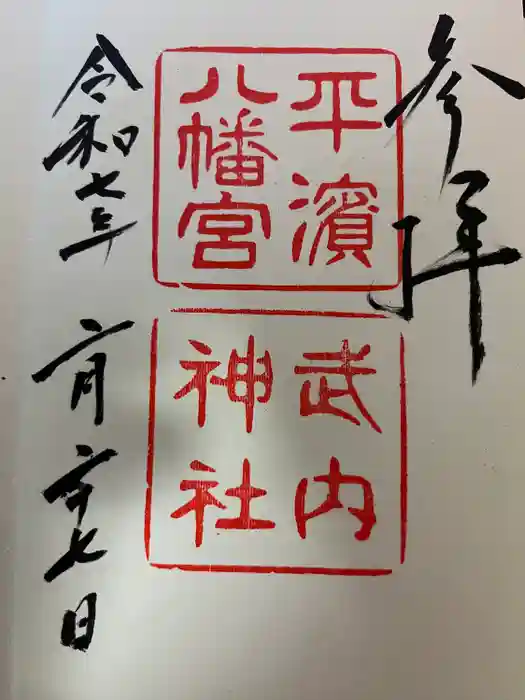 参拝
平濱
八幡宮
武内
神社
令和七年
二月二十七日